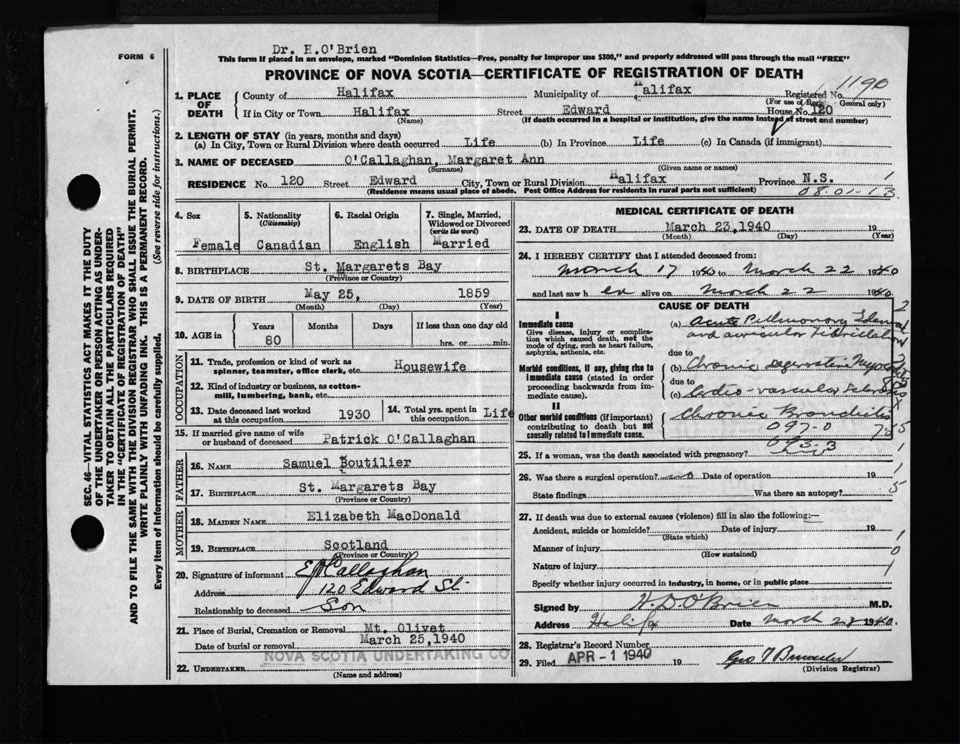 Dr. H.O'Brien
FORM 6
This form if placed in an envelope, marked "Dominion Statistics—Free, penalty for improper use $300," and properly addressed will pass through the mail "FREE"
PROVINCE OF NOVA SCOTIA—CERTIFICATE OF REGISTRATION OF DEATH
1190
1. PLACE OF DEATH
County of Halifax Municipality of Halifax Registered No.
(For use of Regis. General only)
If in City or Town Halifax Street Edward House No. 120
(Name) (If death occurred in a hospital or institution, give the name instead of street and number)
2. LENGTH OF STAY (in years, months and days)
(a) In City, Town or Rural Division where death occurred Life (b) In Province Life (c) In Canada (if immigrant)
3. NAME OF DECEASED O'Callaghan, Margaret Ann
(Surname) (Given name or names)
RESIDENCE No. 120 Street Edward City, Town or Rural Division Halifax Province N.S. 1
(Residence means usual place of abode. Post Office Address for residents in rural parts not sufficient) 08-01-13
4. Sex Female
5. Nationality (Citizenship) Canadian
6. Racial Origin English
7. Single, Married, Widowed or Divorced (write the word) Married
8. BIRTHPLACE St. Margarets Bay
(Province or Country)
9. DATE OF BIRTH May 25, 1859
(Month) (Day) (Year)
10. AGE in Years Months Days If less than one day old
80 hrs. or min.
OCCUPATION
11. Trade, profession or kind of work as spinner, teamster, office clerk, etc. Housewife
12. Kind of industry or business, as cotton-mill, lumbering, bank, etc.
13. Date deceased last worked at this occupation 1930
14. Total yrs. spent in this occupation Life
15. If married give name of wife or husband of deceased Patrick O'Callaghan
FATHER
16. NAME Samuel Boutilier
17. BIRTHPLACE St. Margarets Bay
(Province or Country)
MOTHER
18. MAIDEN NAME Elizabeth MacDonald
19. BIRTHPLACE Scotland
(Province or Country)
20. Signature of informant
Address 120 Edward St.
Relationship to deceased Son
21. Place of Burial, Cremation or Removal Mt. Olivet
Date of burial or removal March 25,1940
22. UNDERTAKER NOVA SCOTIA UNDERTAKING CO
(Name and address)
MEDICAL CERTIFICATE OF DEATH
23. DATE OF DEATH March 23,1940 19
(Month) (Day) (Year)
24. I HEREBY CERTIFY that I attended deceased from:
March 17 1940 to March 22 1940
and last saw h er alive on March 22 1940
CAUSE OF DEATH
I
Immediate cause
Give disease, injury or complication which caused death, not the mode of dying, such as heart failure, asphyxia, asthenia, etc.
(a) Acute Pulmonary
and auricular fibrillation
due to
Morbid conditions, if any, giving rise to immediate cause (stated in order proceeding backwards from immediate cause).
(b) Chronic
due to
(c)
II
Other morbid conditions (if important) contributing to death but not causally related to immediate cause.
Chronic Bronchitis
097-0
093-3
25. If a woman, was the death associated with pregnancy?
26. Was there a surgical operation? Date of operation 19
State findings Was there an autopsy?
27. If death was due to external causes (violence) fill in also the following:—
Accident, suicide or homicide? Date of injury 19
(State which)
Manner of injury
(How sustained)
Nature of injury
Specify whether injury occurred in industry, in home, or in public place
Signed by H. D. O'Brien M.D.
Address Halifax Date March 1940.
28. Registrar's Record Number
29. Filed APR -1 1940 19
(Division Registrar)
SEC. 46—VITAL STATISTICS ACT MAKES IT THE DUTY
OF THE UNDERTAKER OR PERSON ACTING AS UNDER-
TAKER TO OBTAIN ALL THE PARTICULARS REQUIRED
IN THE "CERTIFICATE OF REGISTRATION OF DEATH"
AND TO FILE THE SAME WITH THE DIVISION REGISTRAR WHO SHALL ISSUE THE BURIAL PERMIT.
WRITE PLAINLY WITH UNFADING INK. THIS IS A PERMANENT RECORD.
Every item of information should be carefully supplied. (See reverse side for instructions.)